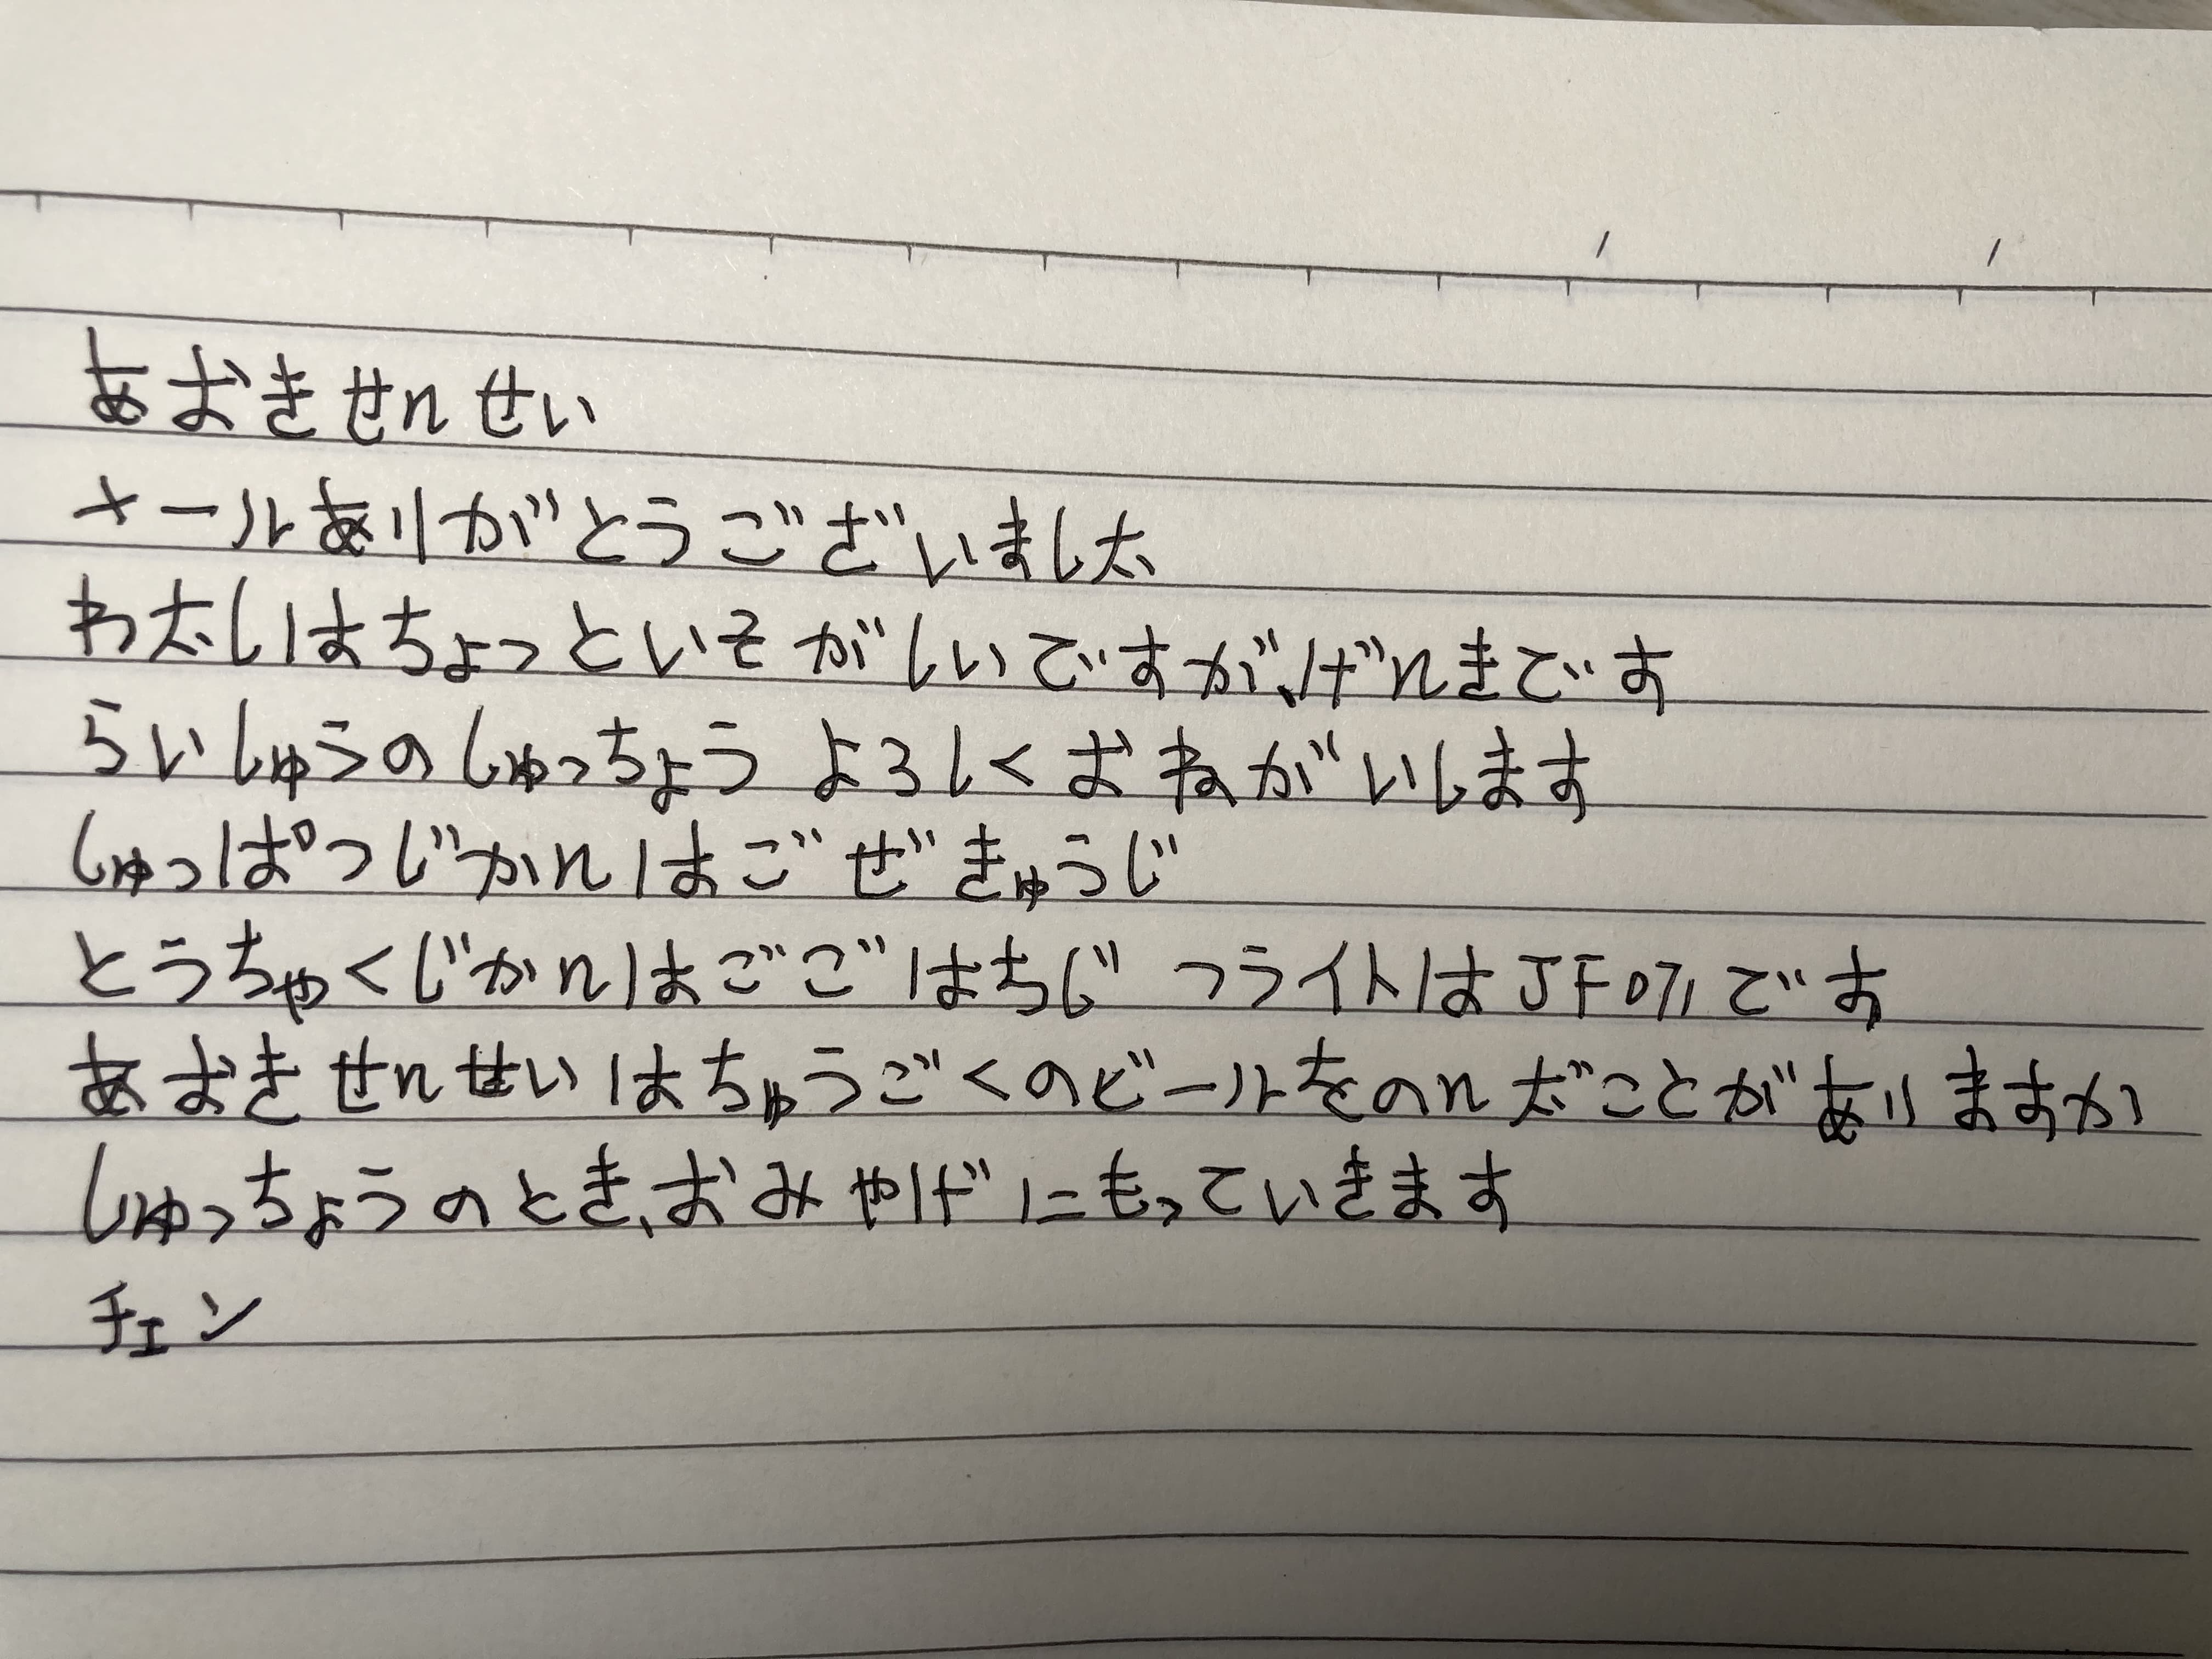 あおきせんせい
メールありがとうございました
わたしはちょっといそがしいですが、げんきです
らいしゅうのしゅっちょう よろしくおねがいします
しゅっぱつじかんはごぜきゅうじ
とうちゃくじかんはごごはちじ フライトはJF071です
あおきせんせいはちゅうごくのビールをのんだことがありますか
しゅっちょうのとき、おみやげにもっていきます
チェン